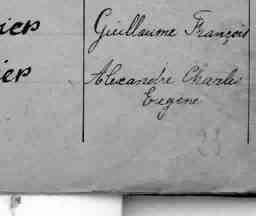 iers Guillaume François
iers Alexandre Charles
Eugène
23